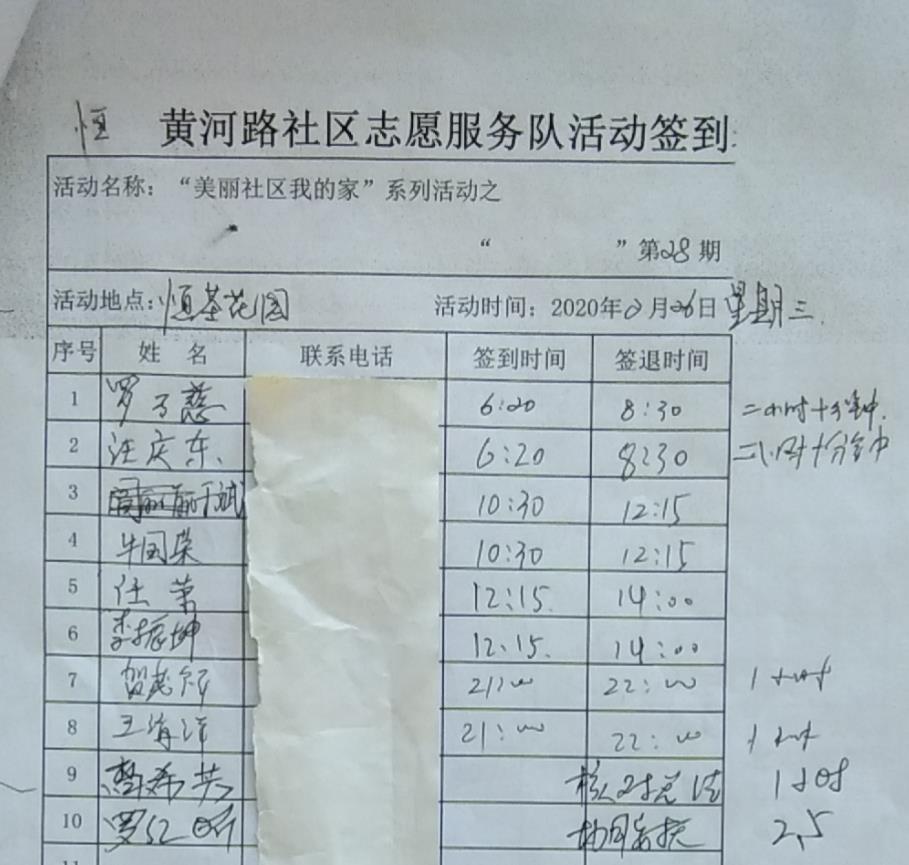 恒 黄河路社区志愿服务队活动签到
活动名称：“美丽社区我的家”系列活动之
“ ”第28期
活动地点：恒基花园 活动时间：2020年2月26日 星期三
序号 姓 名 联系电话 签到时间 签退时间
1 罗子慈 6:20 8:30 二小时十分钟.
2 汪庆东 6:20 8:30 二小时十分钟
3 10:30 12:15
4 牛国荣 10:30 12:15
5 任 12:15 14:00
6 李振坤 12:15. 14:00
7 21:00 22:00 1小时
8 王海洋 21:00 22:00 1小时
9 1小时
10 2.5
11